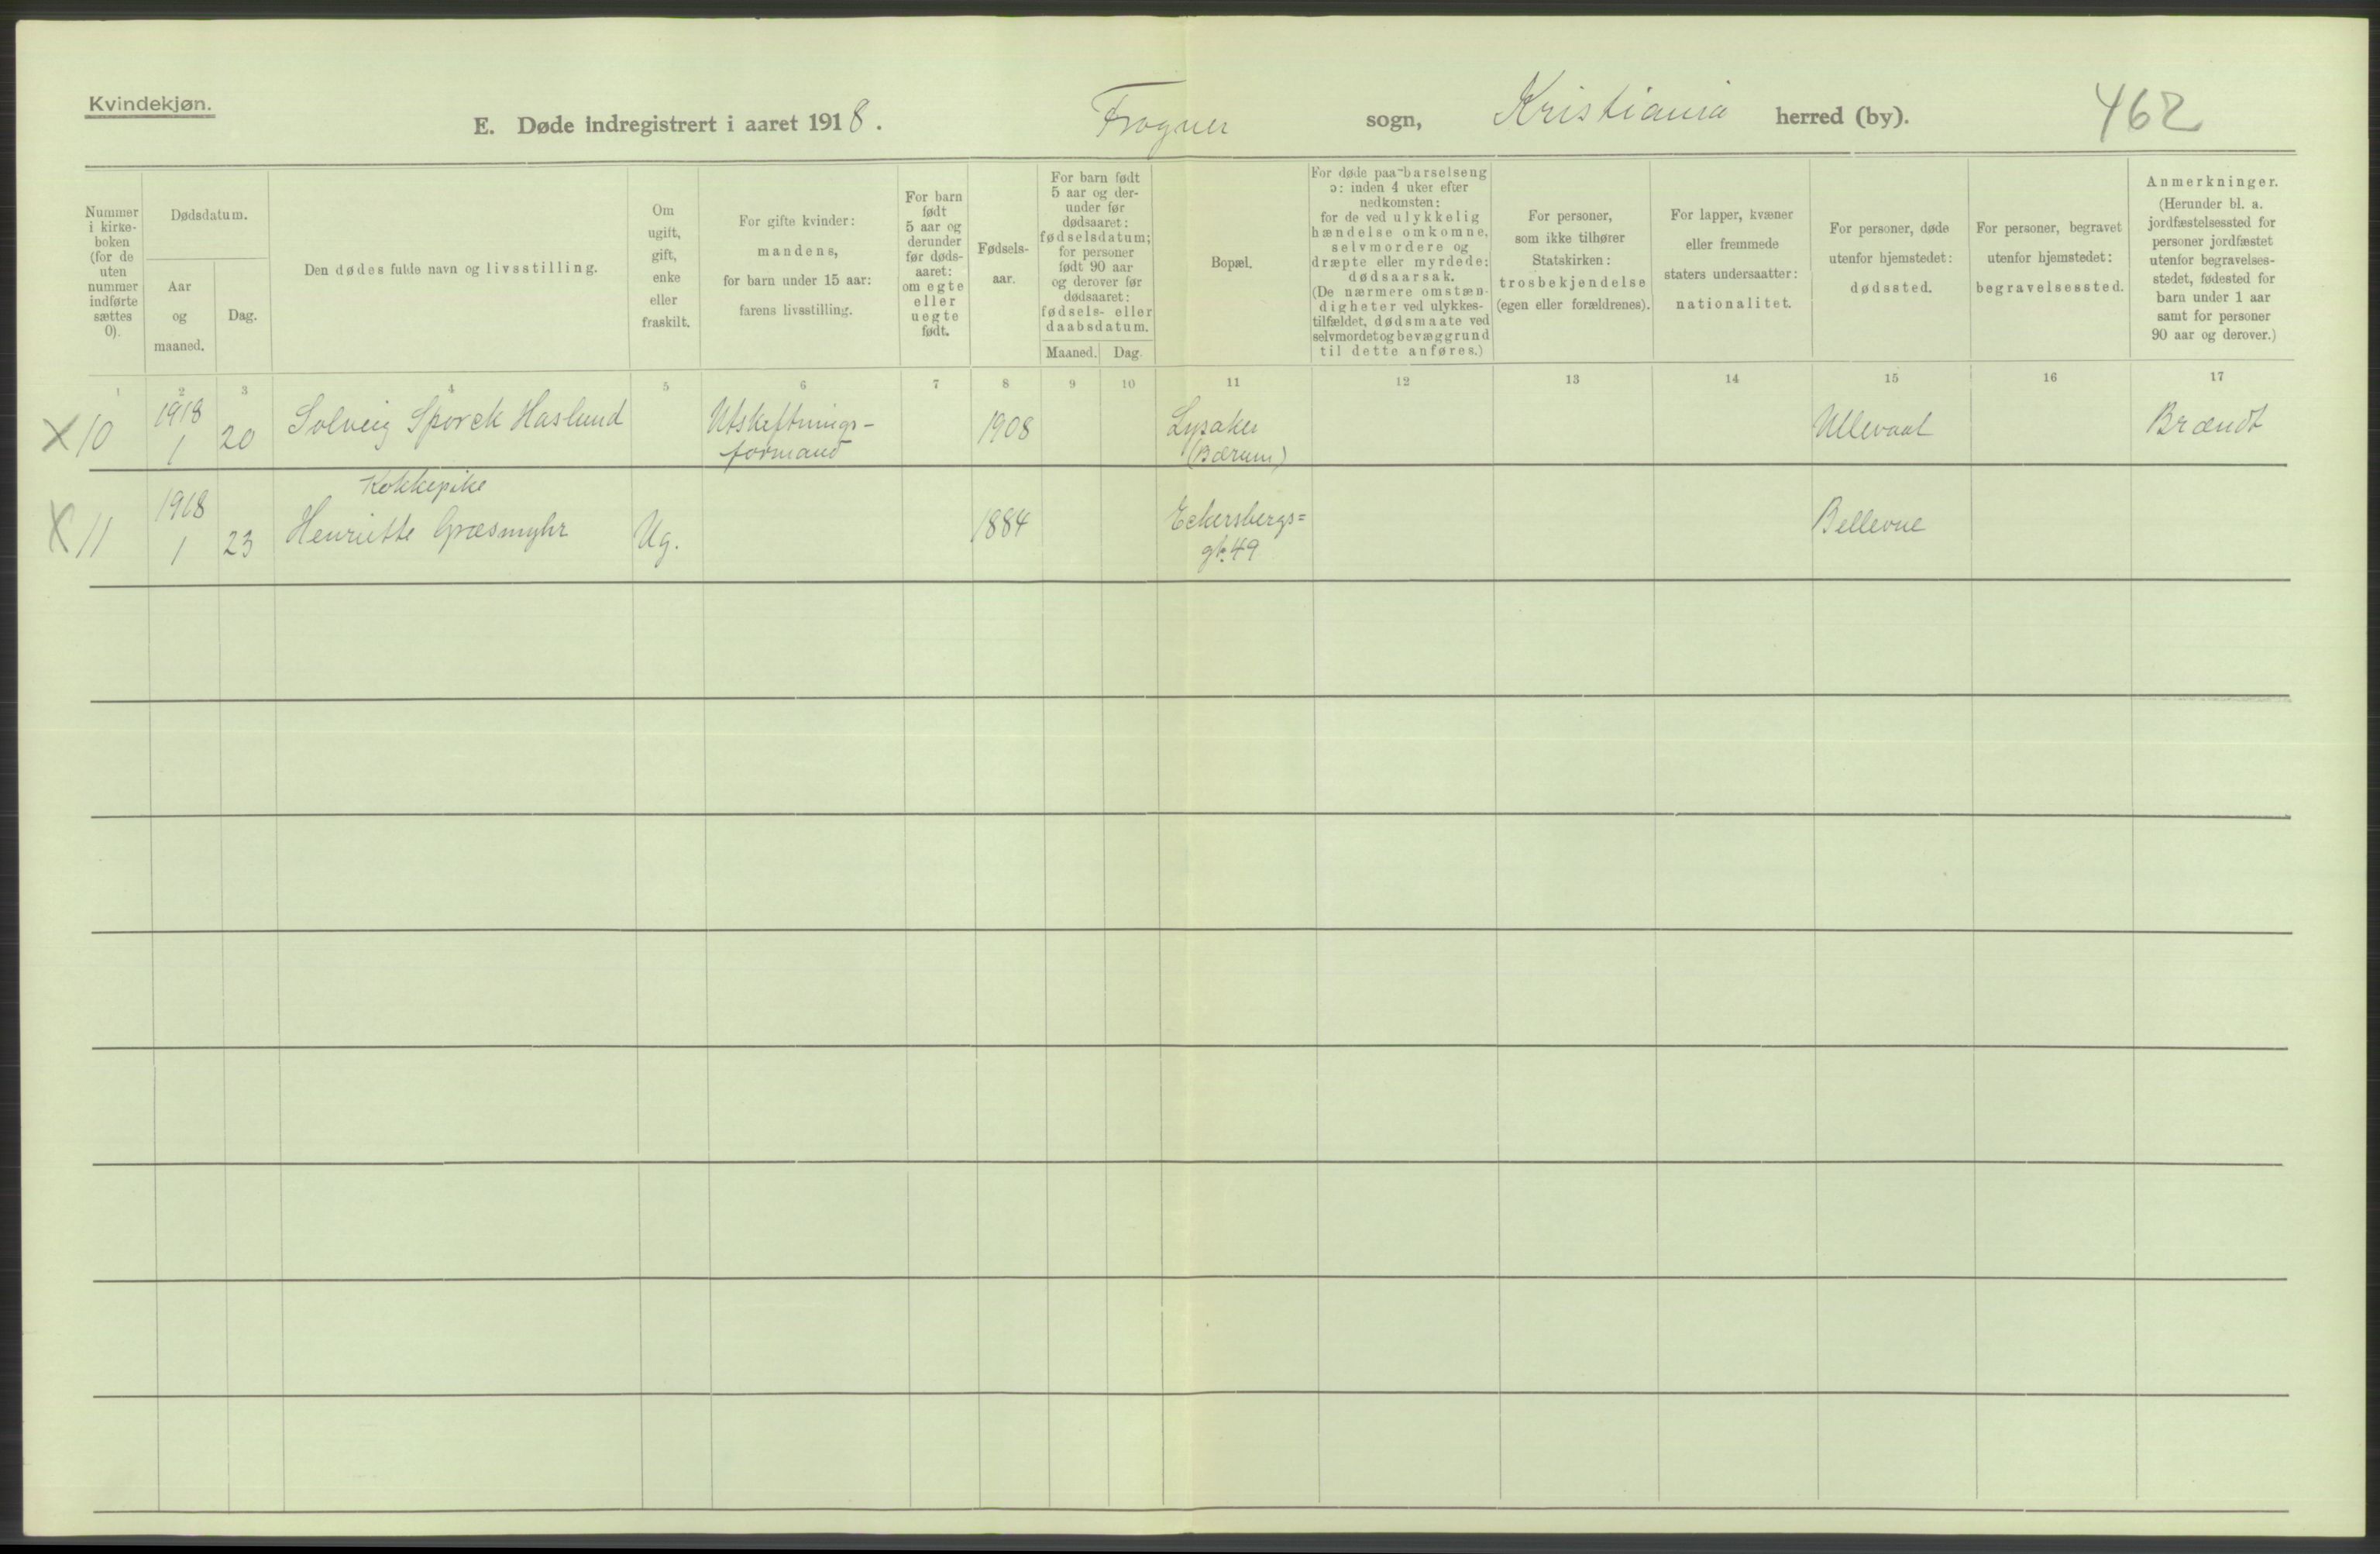 Kvindekjøn.
E. Døde indregistrert i aaret 1918. Frogner sogn, Kristiania herred (by). 462
Nummer
i kirke-
boken
(for de
uten
nummer
indførte
sættes
0).
Dødsdatum.
Aar
og
maaned.
Dag.
Den dødes fulde navn og livsstilling.
Om
ugift,
gift,
enke
eller
fraskilt.
For gifte kvinder:
mandens,
for barn under 15 aar:
farens livsstilling.
For barn
født
5 aar og
derunder
før døds-
aaret:
om egte
eller
uegte
født.
Fødsels-
aar.
For barn født
5 aar og der-
under før
dødsaaret:
fødselsdatum;
for personer
født 90 aar
og derover før
dødsaaret:
fødsels- eller
daabsdatum.
Maaned. Dag.
Bopæl.
For døde paa barselseng
ɔ: inden 4 uker efter
nedkomsten:
for de ved ulykkelig
hændelse omkomne,
selvmordere og
dræpte eller myrdede:
dødsaarsak.
(De nærmere omstæn-
digheter ved ulykkes-
tilfældet, dødsmaate ved
selvmordet og bevæggrund
til dette anføres.)
For personer,
som ikke tilhører
Statskirken:
trosbekjendelse
(egen eller forældrenes).
For lapper, kvæner
eller fremmede
staters undersaatter:
nationalitet.
For personer, døde
utenfor hjemstedet:
dødssted.
For personer, begravet
utenfor hjemstedet:
begravelsessted.
Anmerkninger.
(Herunder bl. a.
jordfæstelsessted for
personer jordfæstet
utenfor begravelses-
stedet, fødested for
barn under 1 aar
samt for personer
90 aar og derover.)
1 2 3 4 5 6 7 8 9 10 11 12 13 14 15 16 17
X 10 1918 1 20 Solveig Sporck Haslund Utskiftnings- 1908 Lysaker Ullevaal Brændt
formand (Bærum)
Kokkepike
X 11 1918 1 23 Henriette Græsmyhr Ug. 1884 Eckersbergs= Bellevue
gt. 49